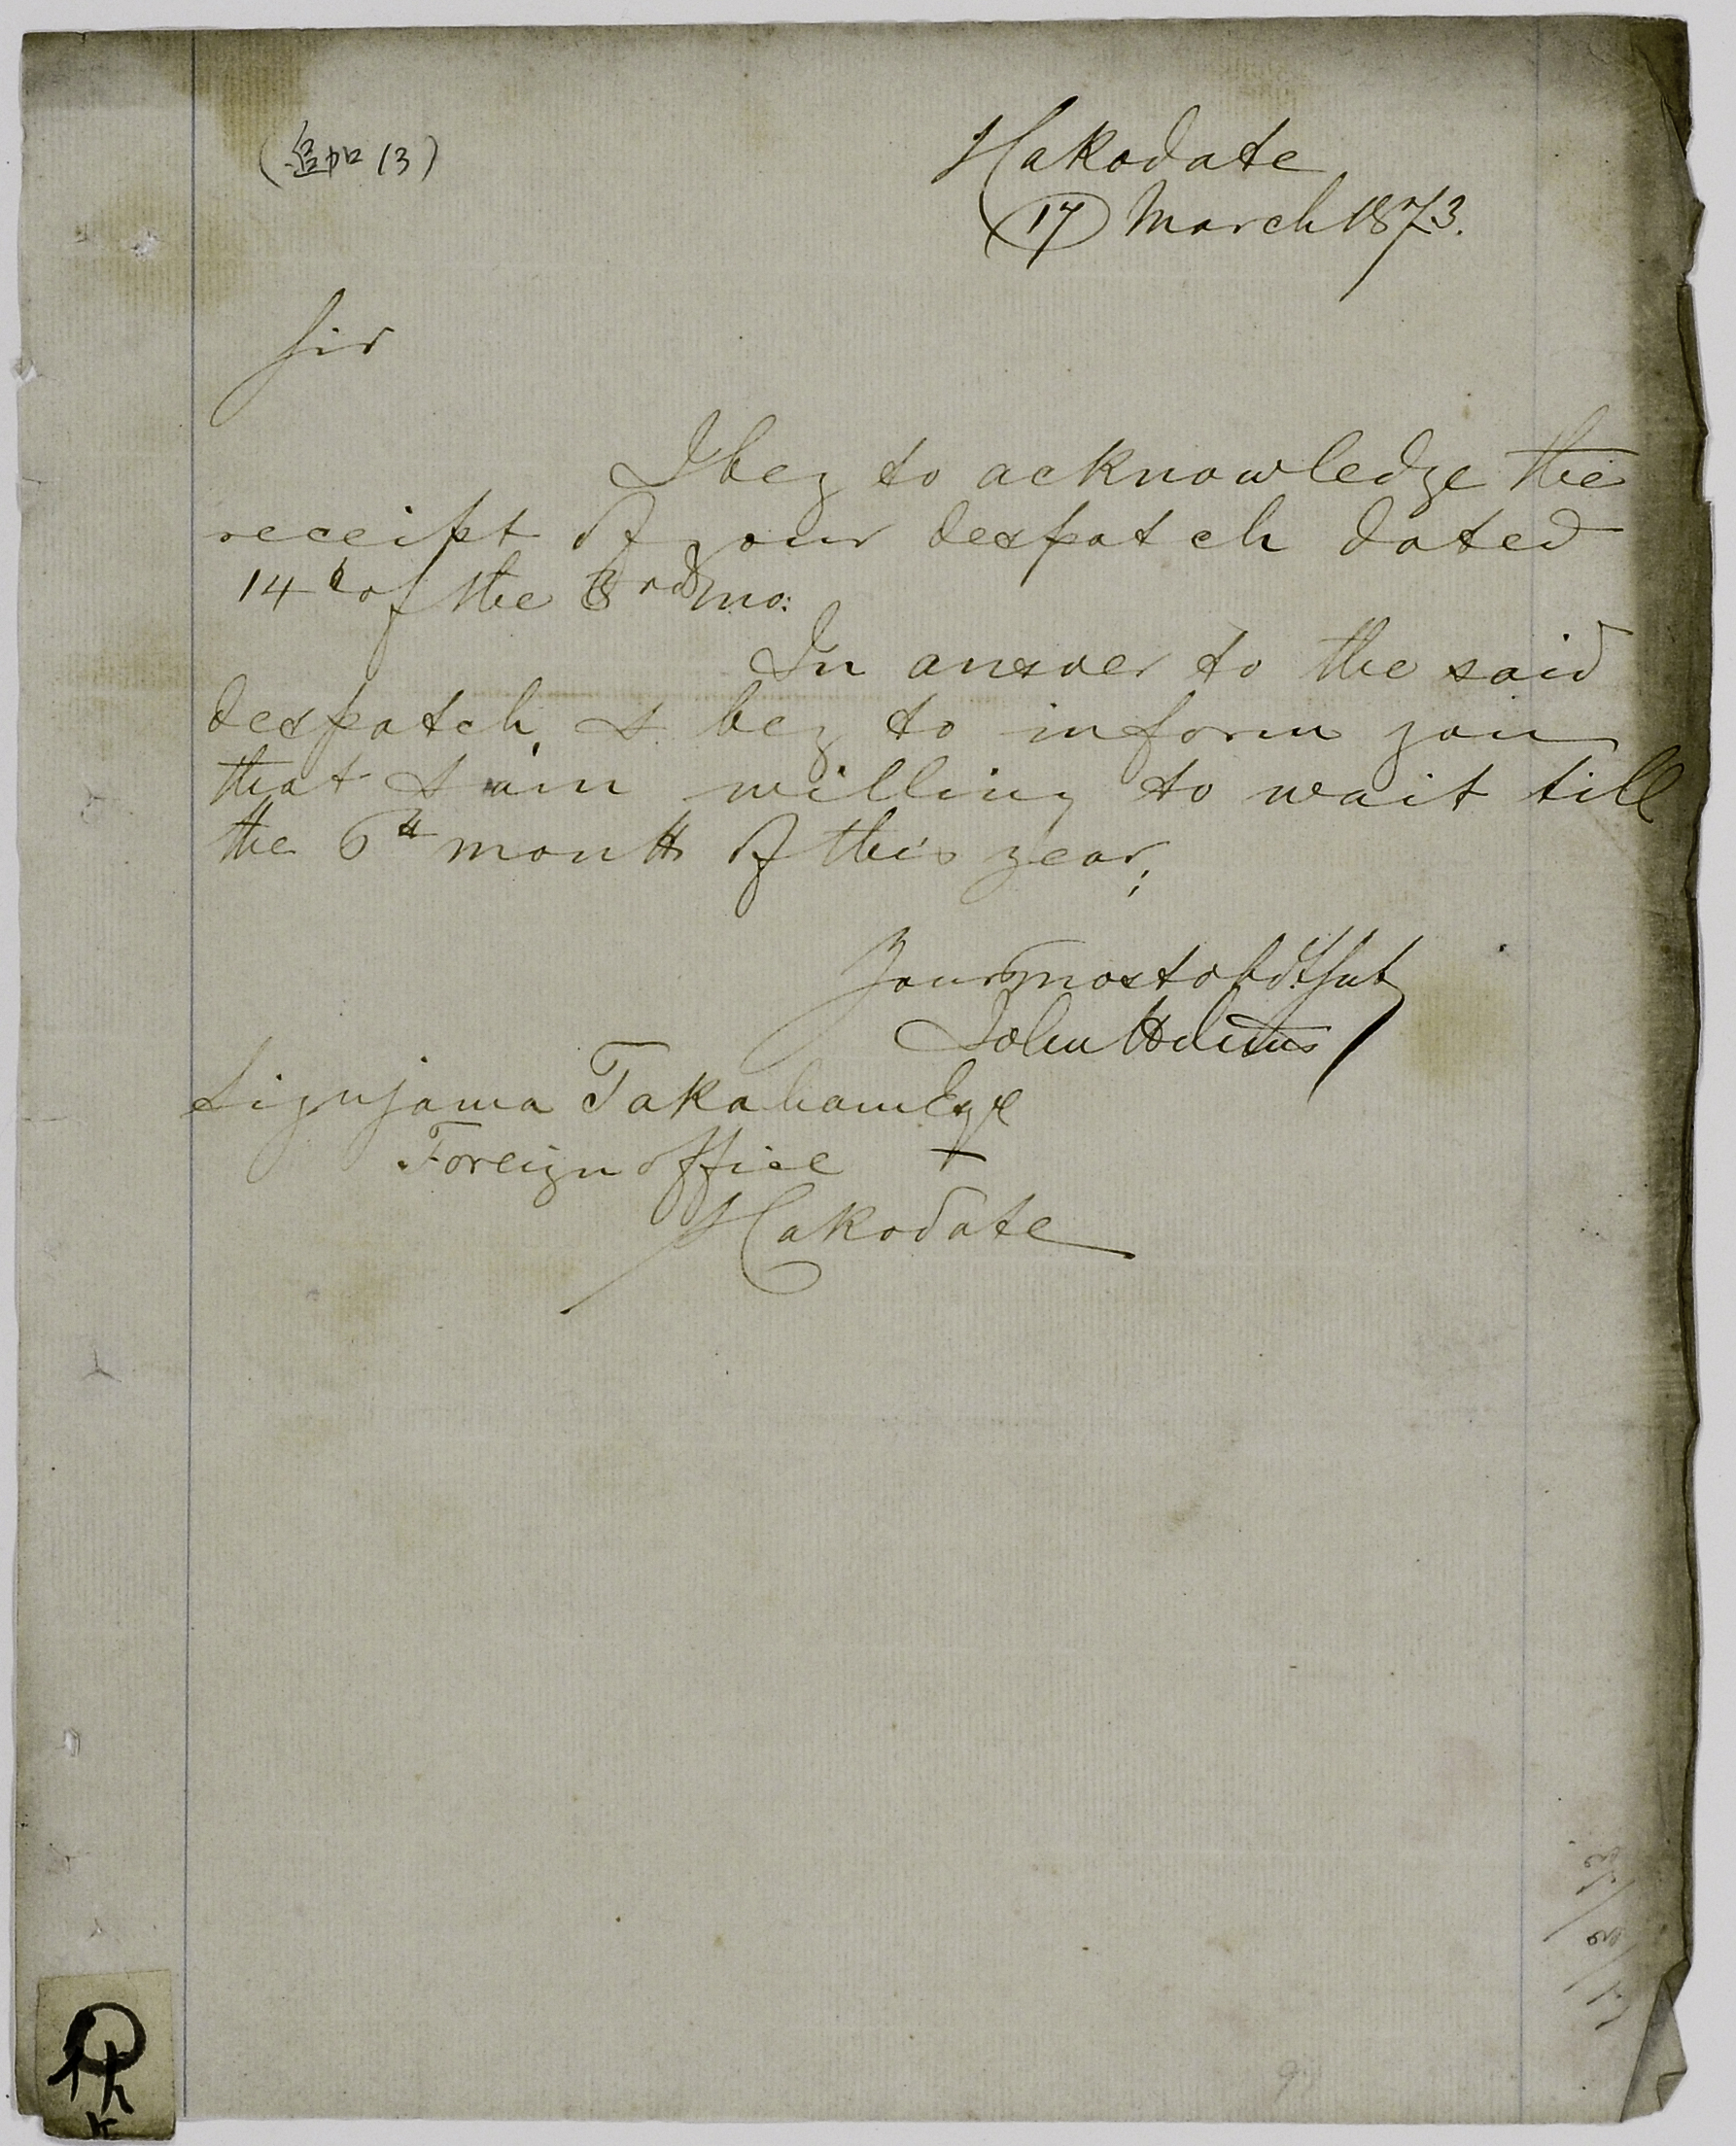 (追加 13)
Hakodate
17 March 1873.
Sir
I beg to acknowledge the
receipt of your despatch dated
14t of the 3rd mo:
In answer to the said
despatch I beg to inform you
that I am willing to wait till
the 6th month of this year,
Your most obdt Svt
John
Sigujama Takaham Esqr
Foreign office
Hakodate